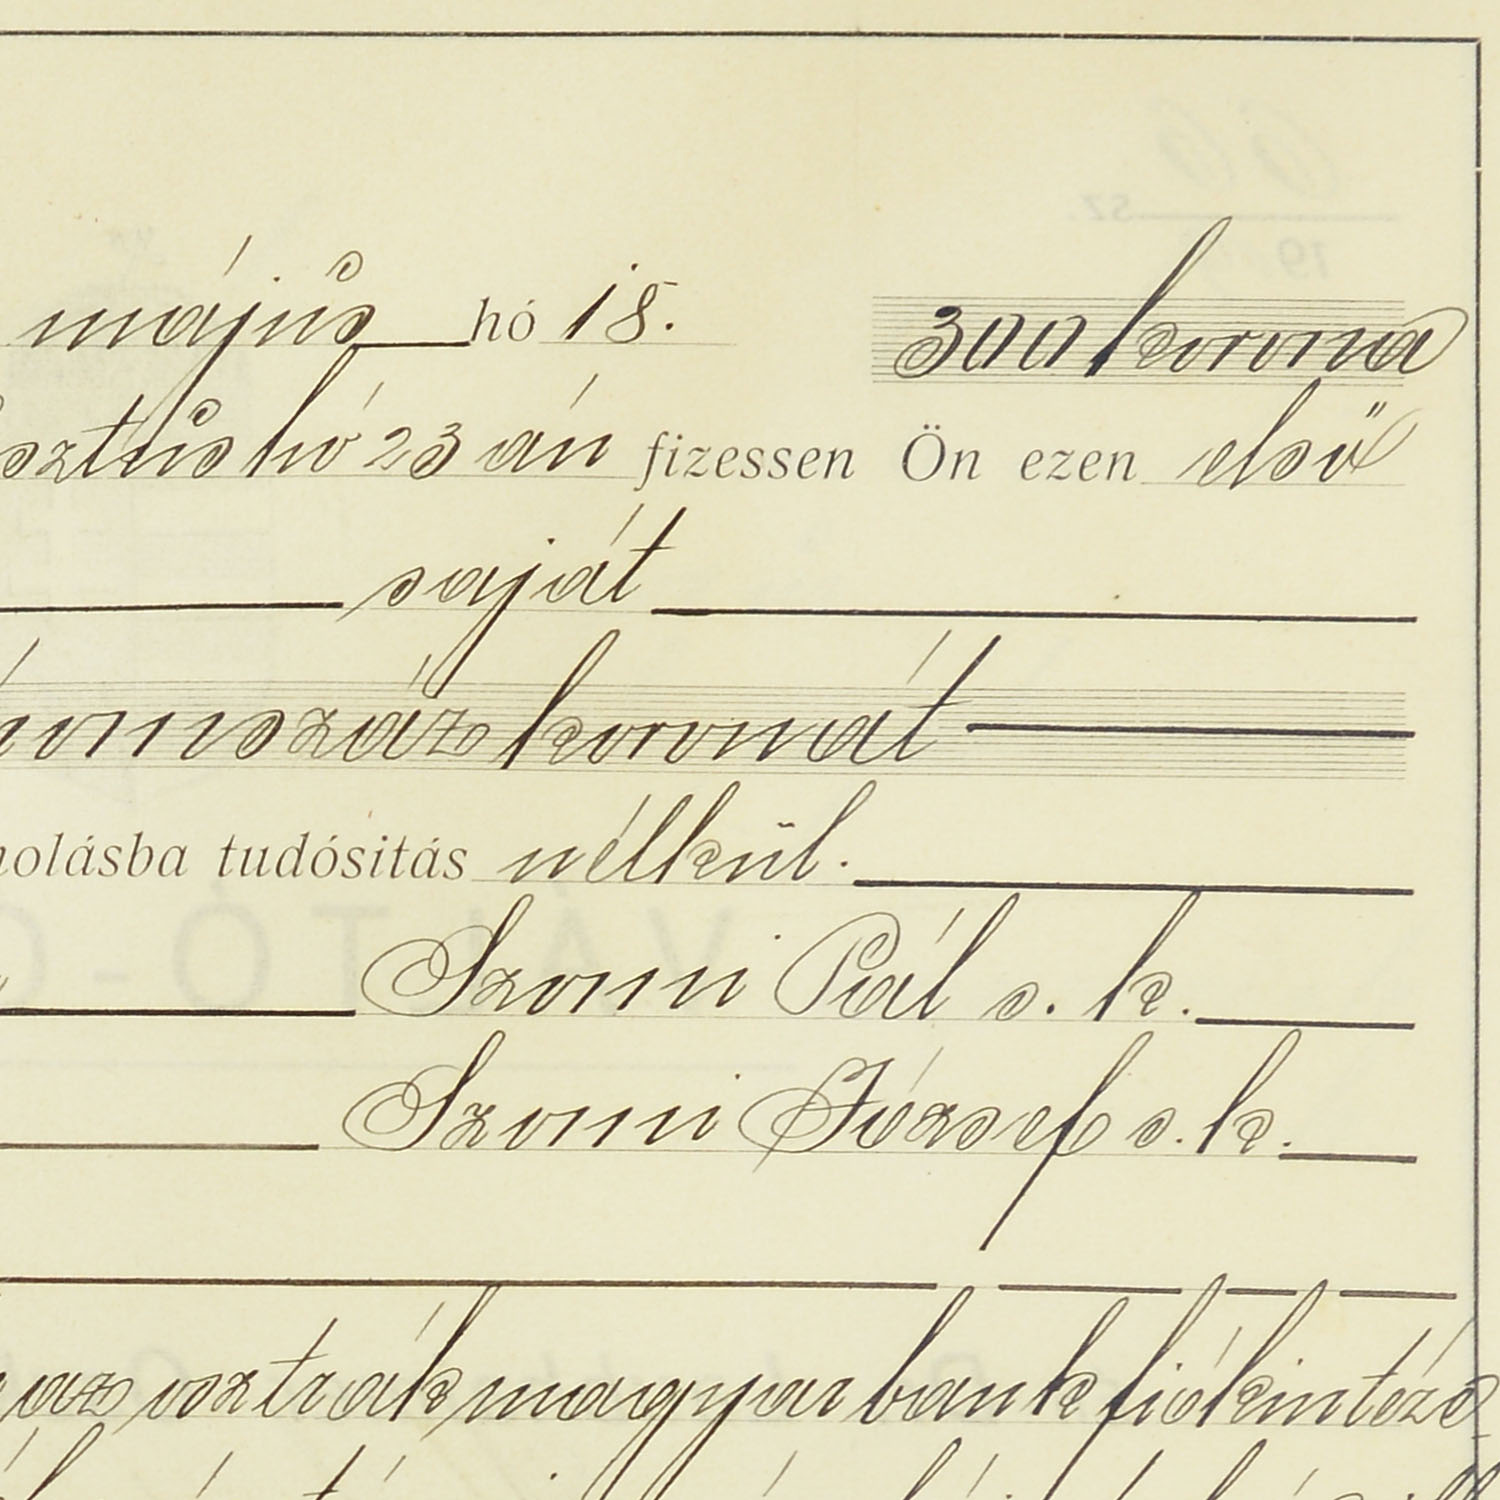 május hó 18. 300 korona
osztus hó 23 án fizessen Ön ezen első
saját
romszáz koronát
molásba tudósitás nélkül.
Szomi Pál s. k.
Szomi József s. k.
az osztrák magyar bank fiókintéze